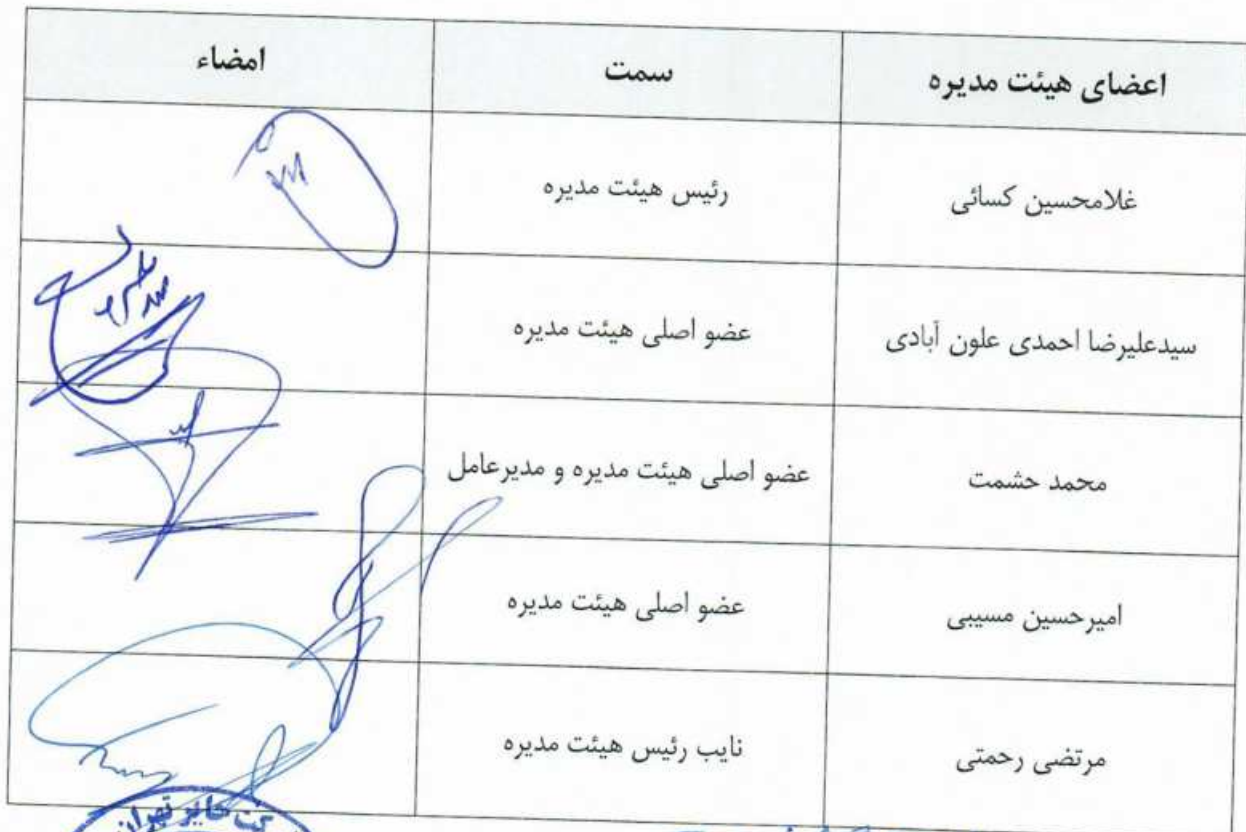 اعضای هیئت مدیره سمت امضاء
غلامحسین کسائی رئیس هیئت مدیره
سیدعلیرضا احمدی علون آبادی عضو اصلی هیئت مدیره
محمد حشمت عضو اصلی هیئت مدیره و مدیرعامل
امیرحسین مسیبی عضو اصلی هیئت مدیره
مرتضی رحمتی نایب رئیس هیئت مدیره
تایر تهران